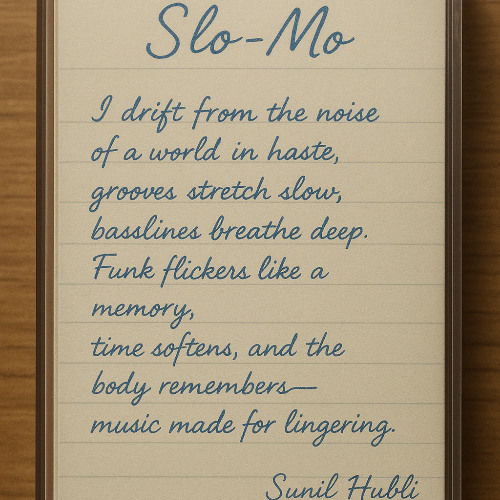 Slo-Mo
I drift from the noise
of a world in haste,
grooves stretch slow,
basslines breathe deep.
Funk flickers like a
memory,
time softens, and the
body remembers—
music made for lingering.
Sunil Hubli